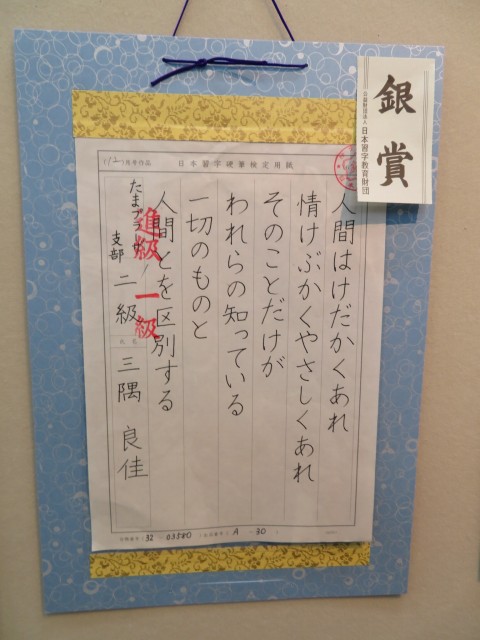 銀賞
公益財団法人 日本習字教育財団
(12)月号作品
日本習字硬筆検定用紙
人間はけだかくあれ
情けぶかくやさしくあれ
そのことだけが
われらの知っている
一切のものと
人間とを区別する
進級 一級
たまプラーザ支部 二級
氏名 三隅良佳
32-03580
A-30